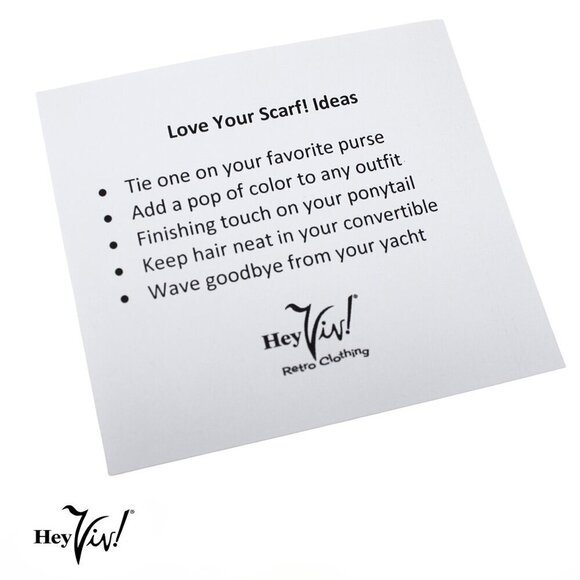 Love Your Scarf! Ideas
• Tie one on your favorite purse
• Add a pop of color to any outfit
• Finishing touch on your ponytail
• Keep hair neat in your convertible
• Wave goodbye from your yacht
Hey Viv!®
Retro Clothing
Hey Viv!®